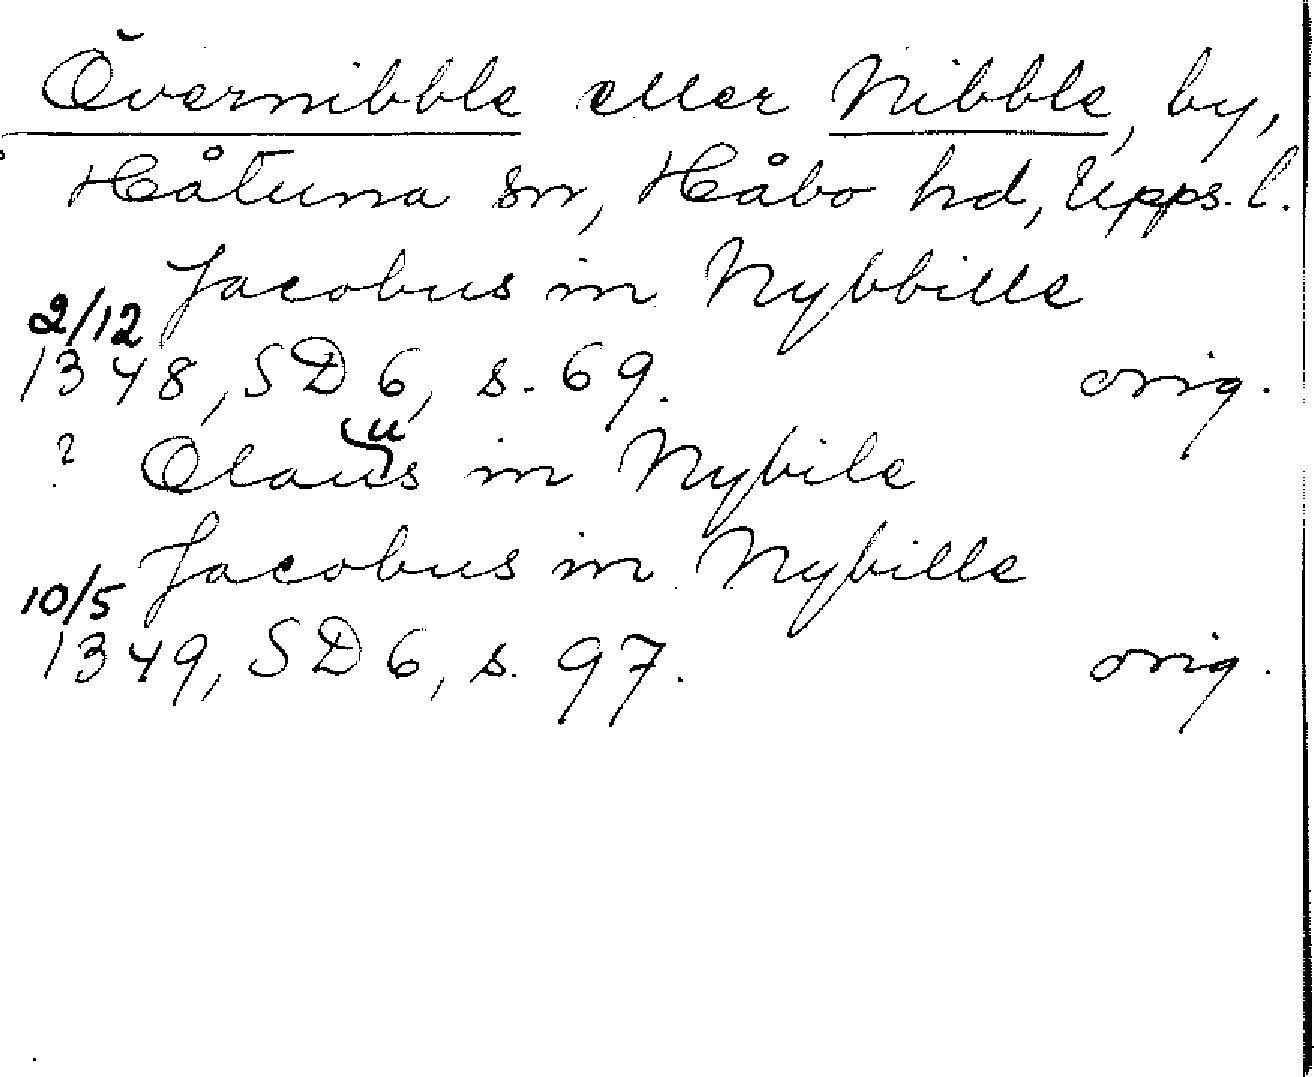 Övernibble eller Nibble, by,
Håtuna sn, Håbo hd, Upps. l.
Jacobus in Nybbille
2/12
1348, SD 6, s. 69. orig.
? Olauus in Nybile
Jacobus in Nybille
10/5
1349, SD 6, s. 97. orig.